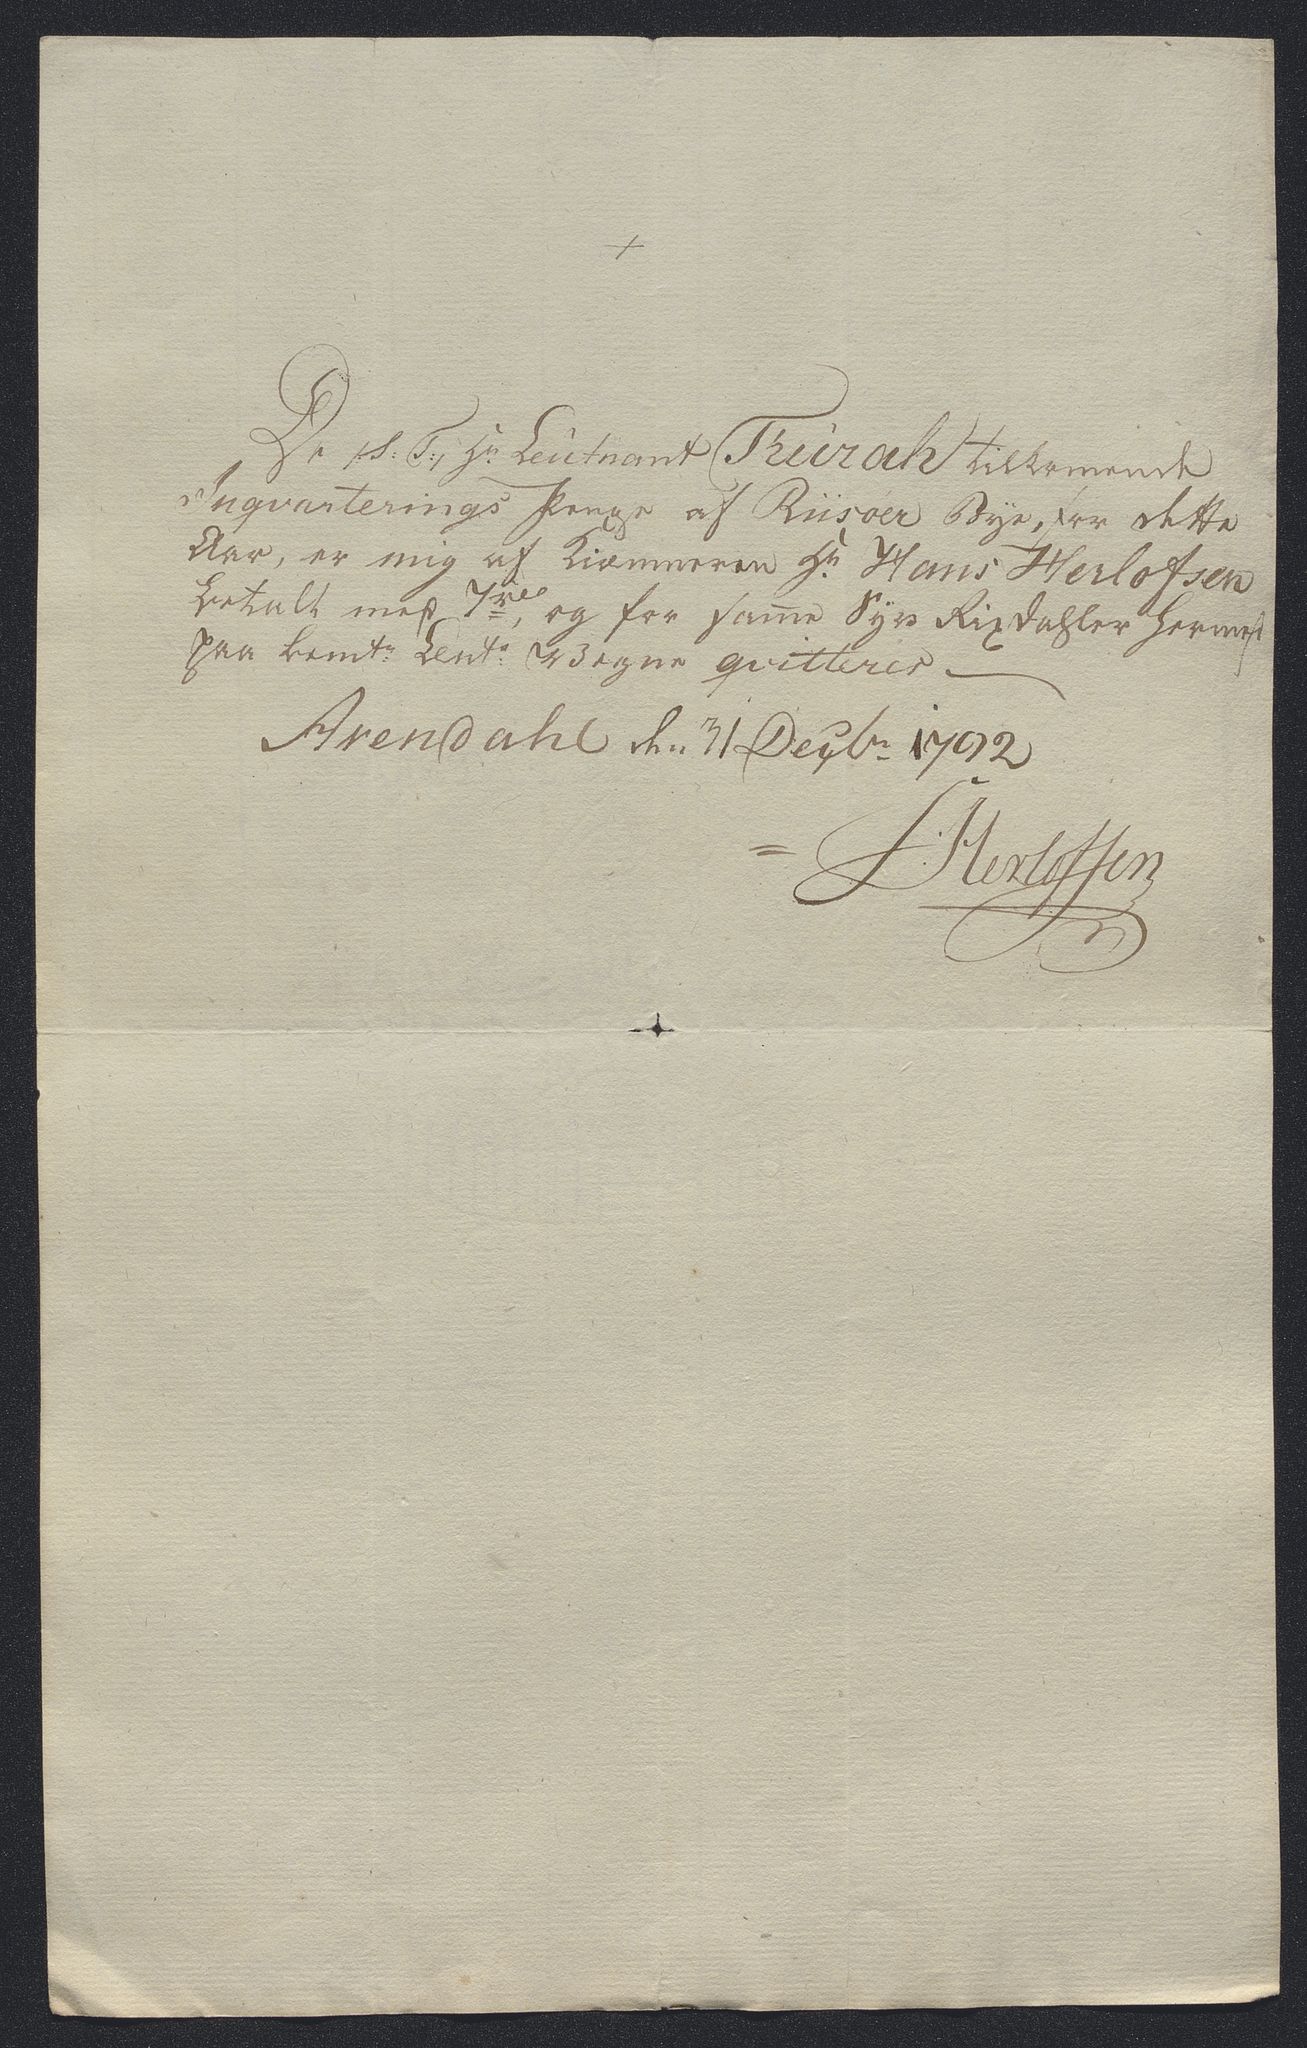 De /:S: T:/ Hr Leütnant Thürah tilkomende
Inqvarterings Penge af Riisöer Bye, for dette
Aar, er mig af Kiæmneren Hr Hans Herlofsen
betalt med 7 rd, og for samme Syv Rixdahler Hermed
paa bemte Leüts Vegne qvitteres
Arendahl den 31 Decbr 1792
Herlofsen